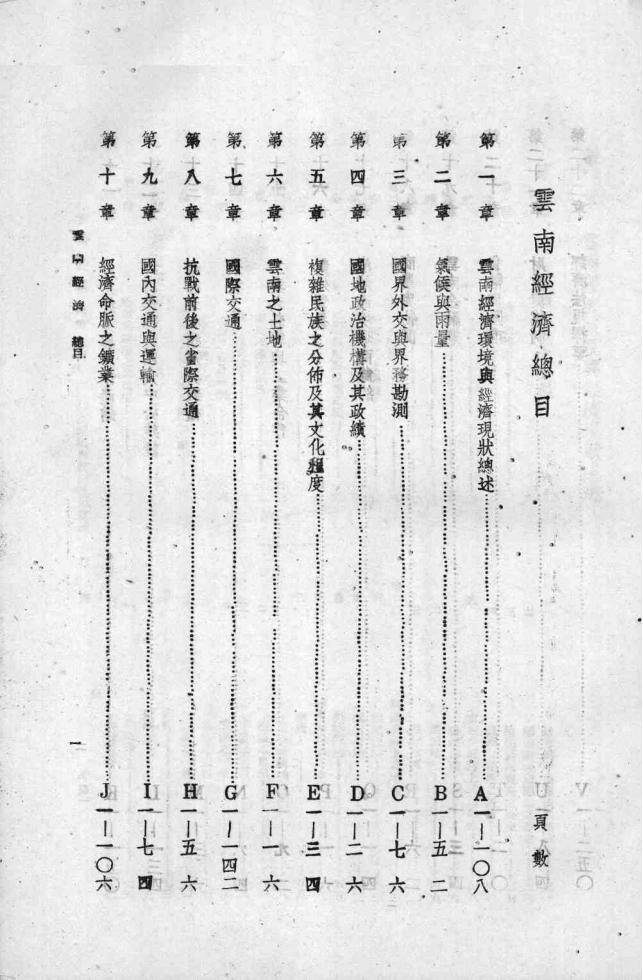 雲南經濟總目　頁數
第一章　雲南經濟環境與經濟現狀總述　A一—一〇八
第二章　氣候與雨量　B一—五二
第三章　國界外交與界務勘測　C一—七六
第四章　國地政治機構及其政績　D一—二六
第五章　複雜民族之分佈及其文化程度　E一—三四
第六章　雲南之土地　F一—一六
第七章　國際交通　G一—一四二
第八章　抗戰前後之省際交通　H一—五六
第九章　國內交通與運輸　I一—七四
第十章　經濟命脈之鑛業　J一—一〇六
雲南經濟　總目　一